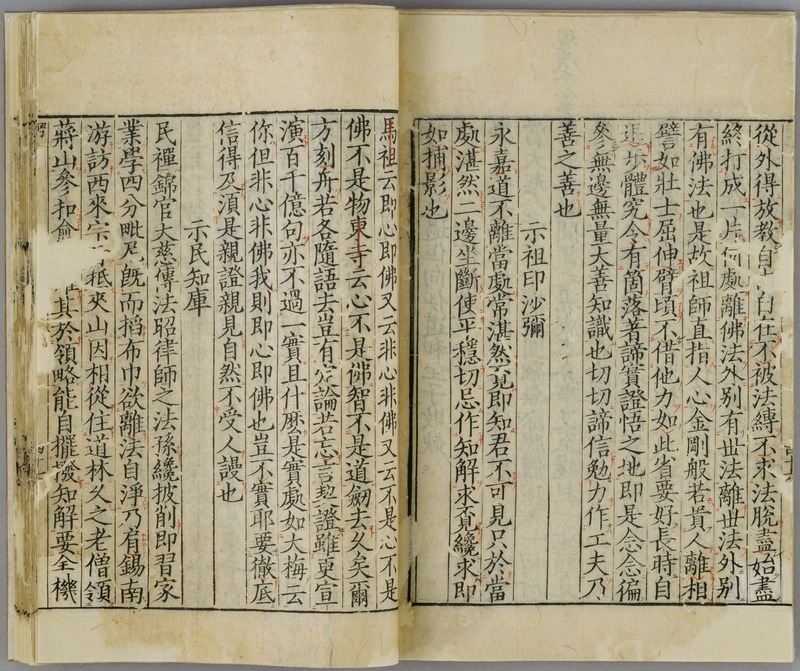 從外得放教自 自在不被法縛不求法脫盡始盡
終打成一片何處離佛法外別有世法離世法外別
有佛法也是故祖師直指人心金剛般若貴人離相
譬如壯士屈伸臂頃不借他力如此省要好長時自
退步體究令有箇落著諦實證悟之地即是念念徧
參無邊無量大善知識也切切諦信勉力作工夫乃
善之善也
示祖印沙彌
永嘉道不離當處常湛然覓即知君不可見只於當
處湛然二邊坐斷使平穩切忌作知解求覓纔求即
如捕影也
馬祖云即心即佛又云非心非佛又云不是心不是
佛不是物東寺云心不是佛智不是道劒去久矣爾
方刻舟若各隨語去豈有定論若忘言契證雖更宣
演百千億句亦不過一實且什麽是實處如大梅云
你但非心非佛我則即心即佛也豈不實耶要徹底
信得及須是親證親見自然不受人謾也
示民知庫
民禪錦官大慈傳法昭律師之法孫纔披削即習家
業學四分毗尼既而搯布巾欲離法自淨乃肩錫南
游訪西來宗 抵夾山因相從住道林久之老僧領
蔣山參扣俞 其於領略能自擺撥知解要全機